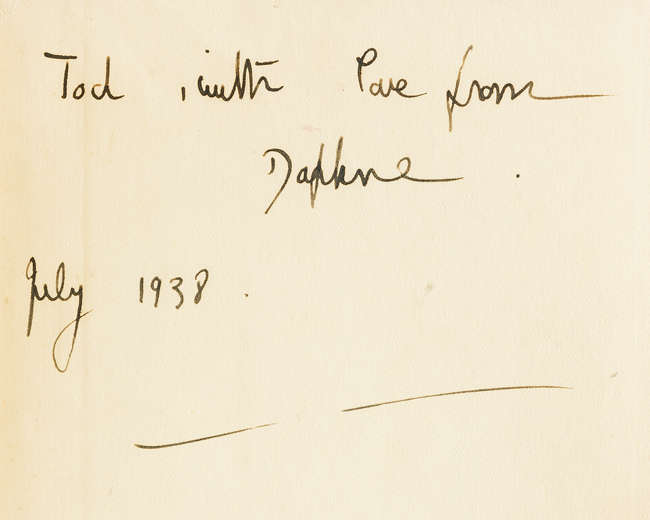 Tod, with love from
Daphne.
July 1938.